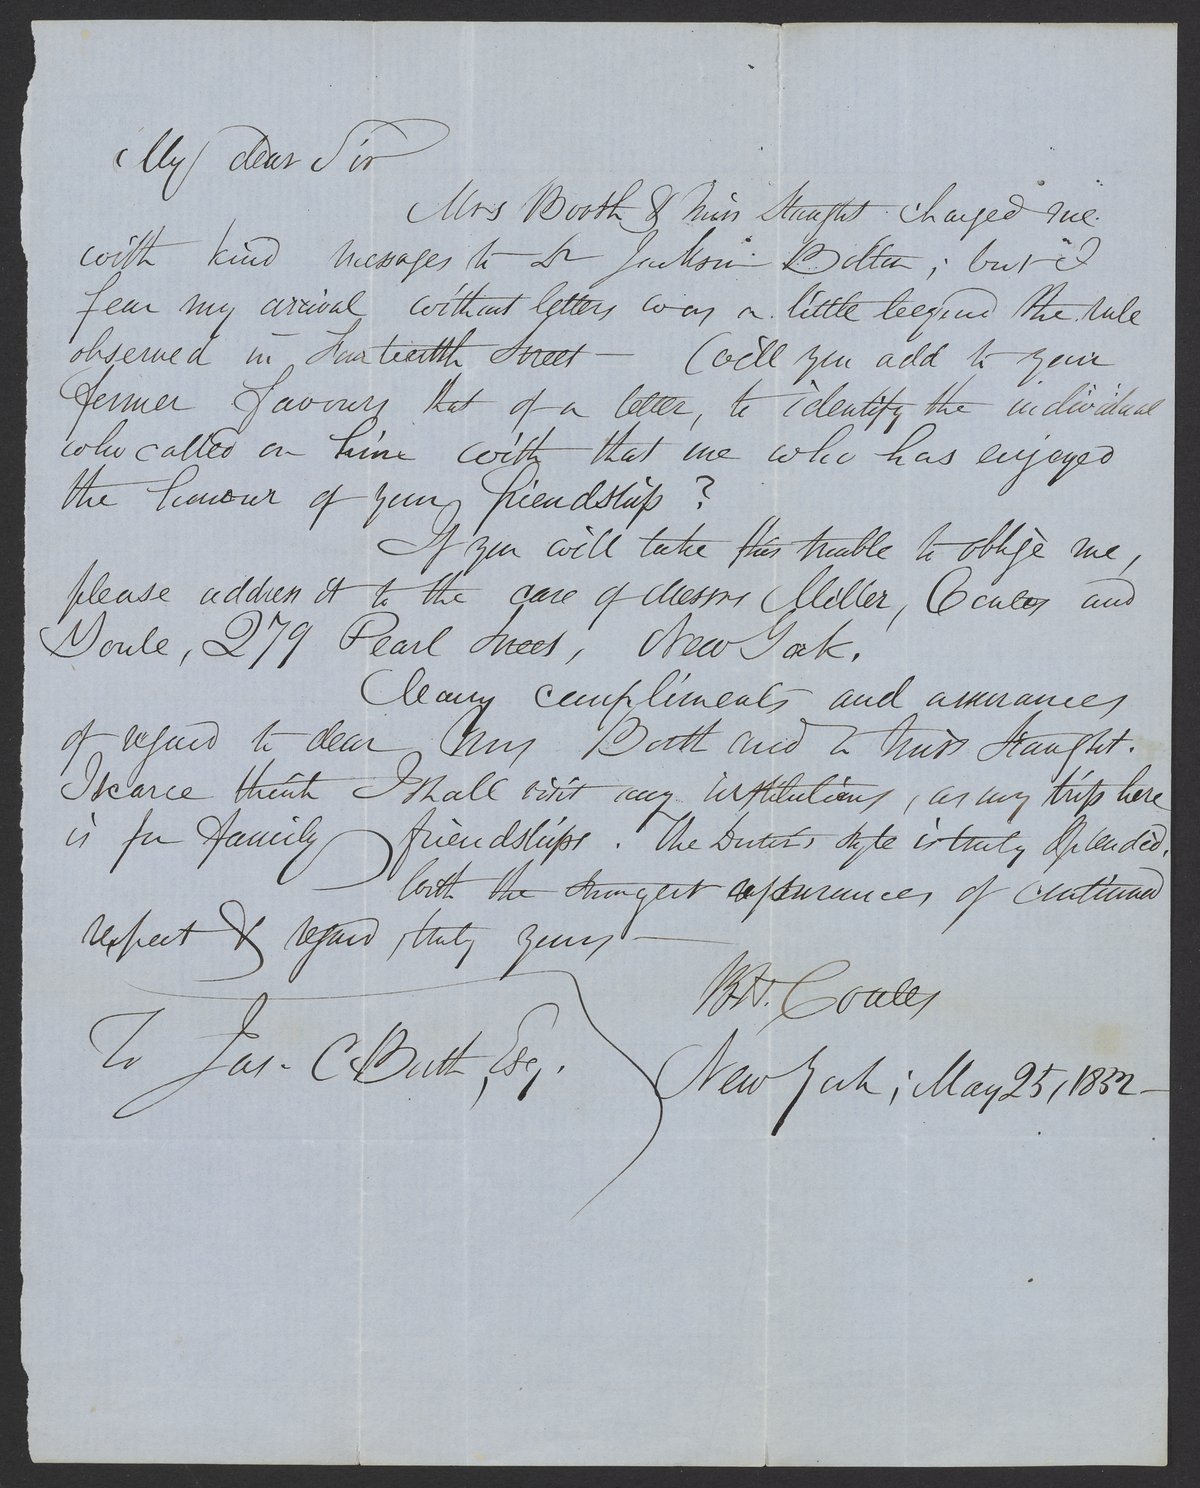 My dear Sir
Mrs Booth & Miss Haught charged me
with kind messages to Dr Jackson Bolton; but I
fear my arrival without letters was a little beyond the rule
observed in Fourteenth Street — Will you add to your
former favours that of a letter, to identify the individual
who called on him with that one who has enjoyed
the honour of your friendship?
If you will take this trouble to oblige me,
please address it to the care of Messrs Miller, Coates and
Youle, 279 Pearl Street, New York.
Many compliments and assurances
of regard to dear Mrs Booth and to Miss Haught.
I scarce think I shall visit any institutions, as my trip here
is for family friendships. The style is truly splendid.
With the strongest assurances of continued
respect & regard, truly yours —
B. H. Coates
To Jas. C Booth, Esq.
New York; May 25, 1852 —